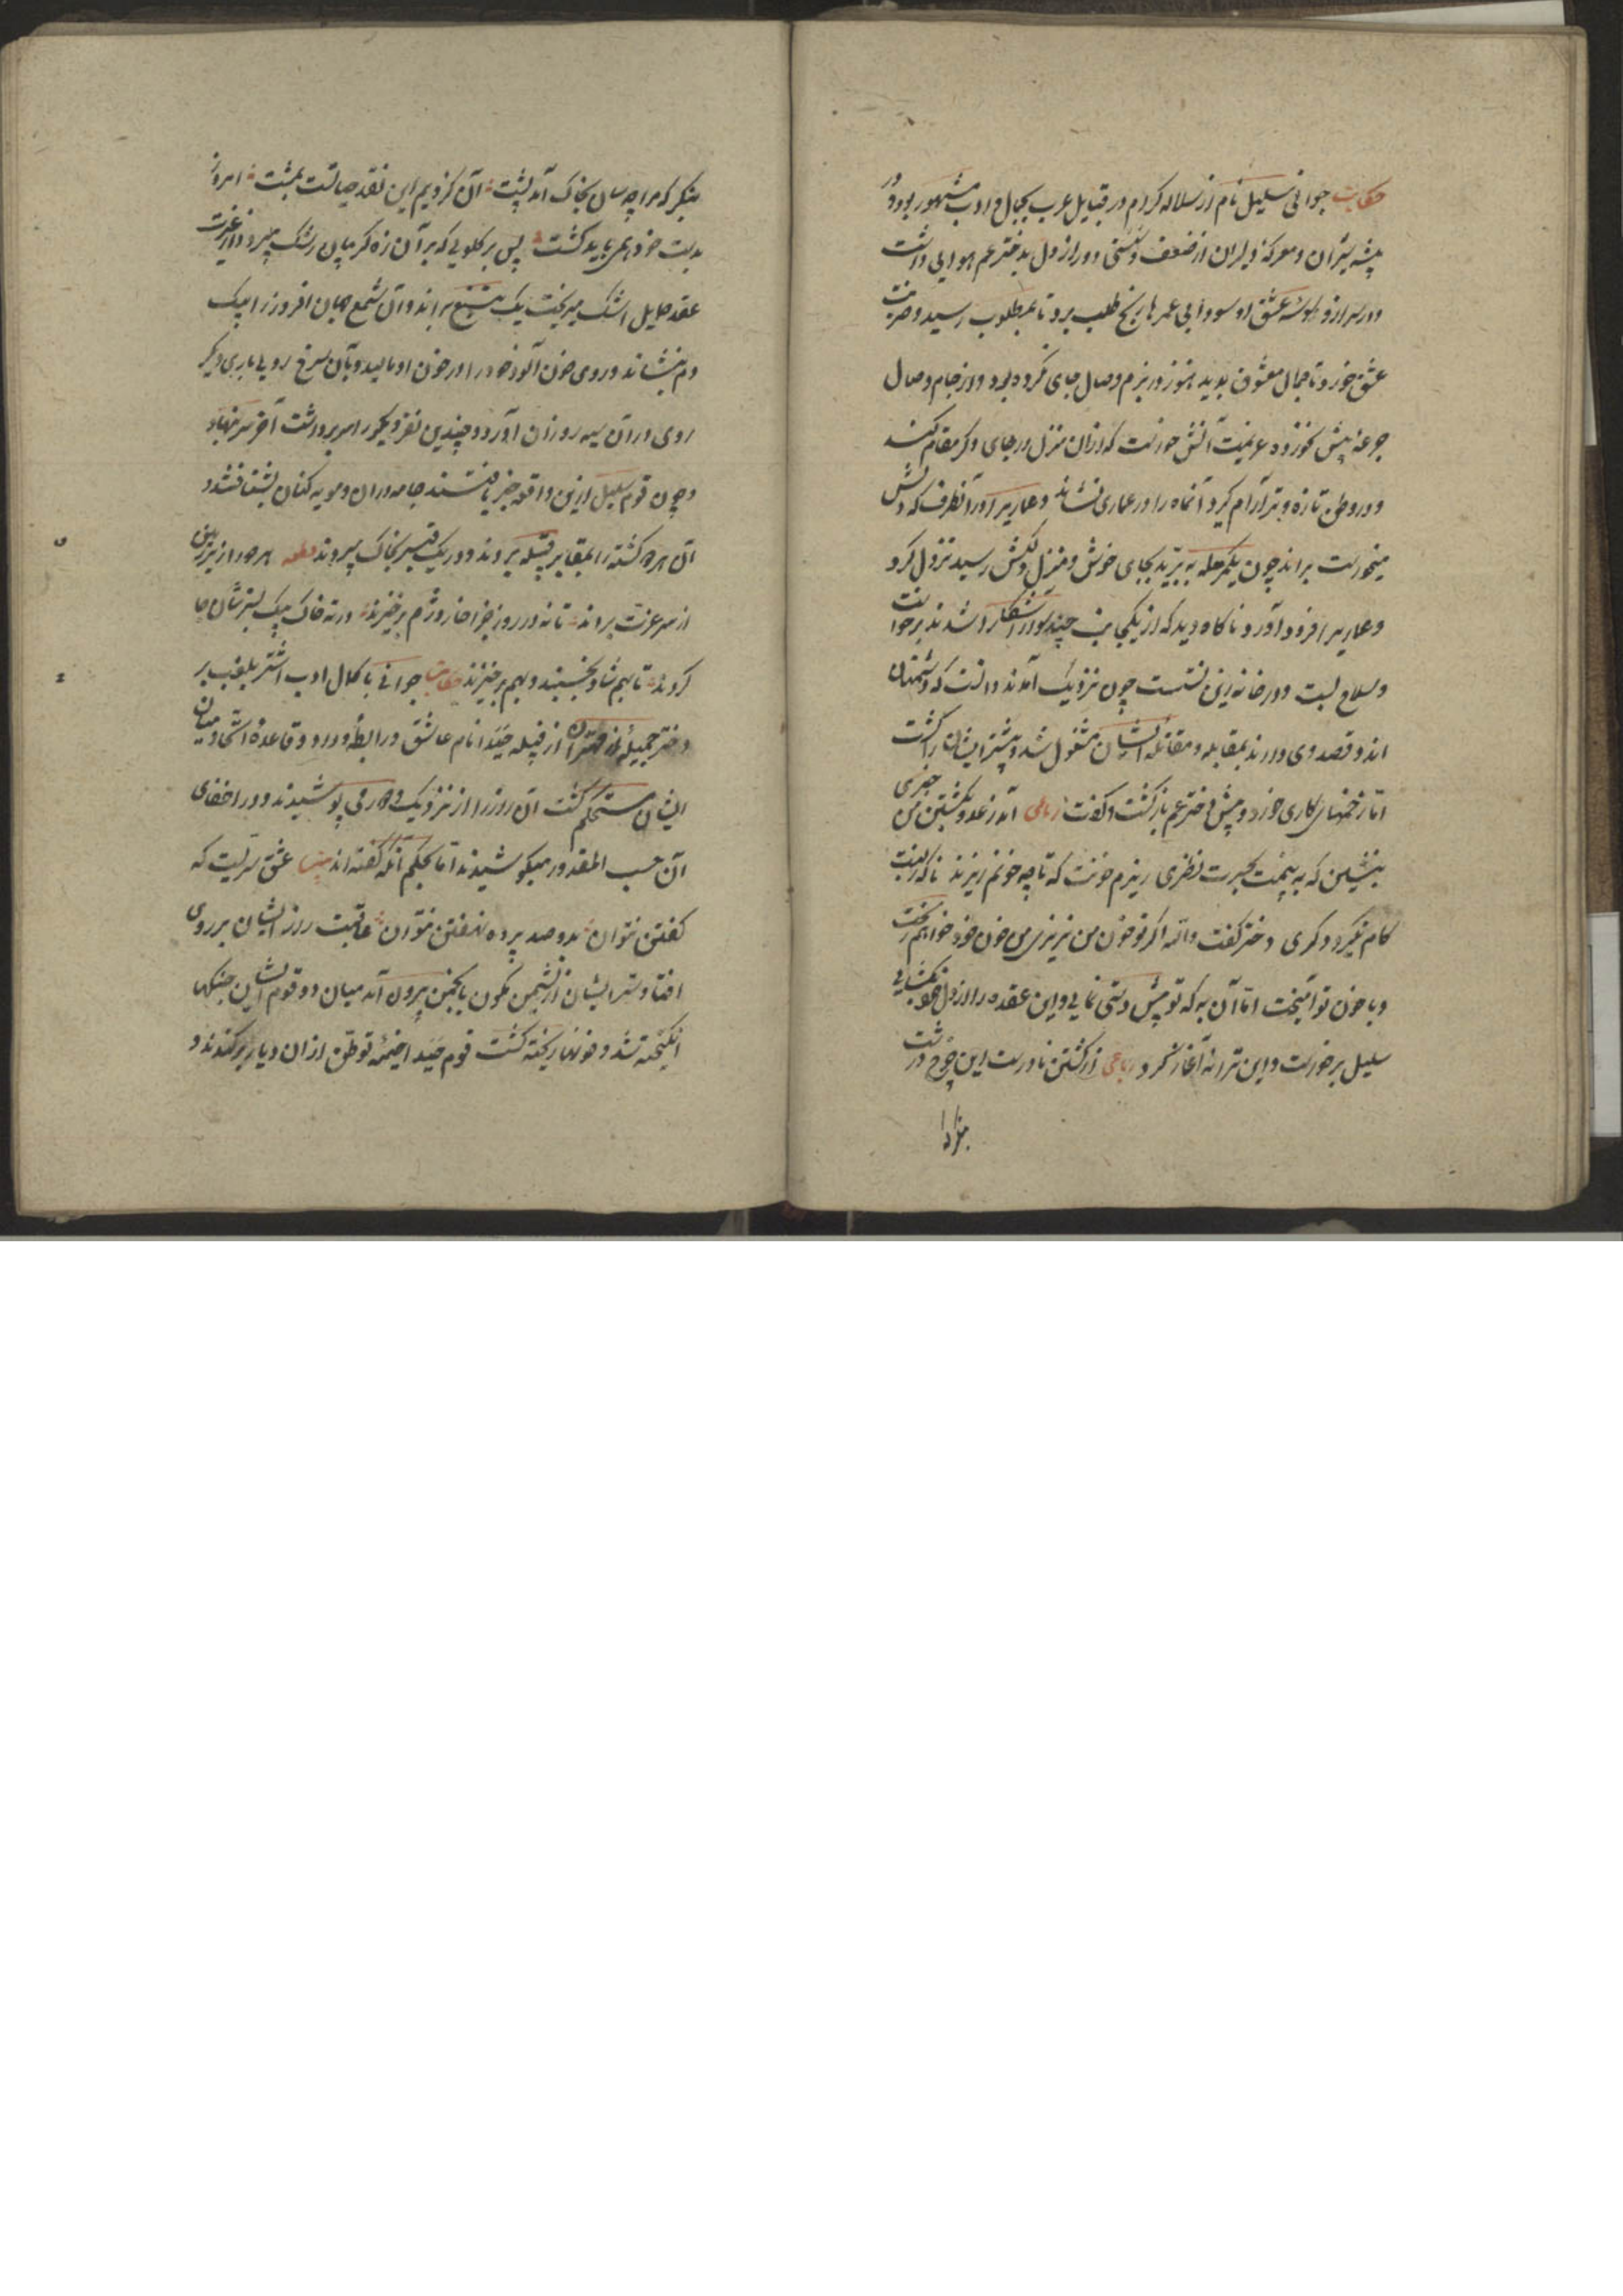 حکایت جوانی سلیل نام از سلاله کرام در قبایل عرب بجمال و ادب مشهور بود و در
بیشه شیران و معرکه دلیران از ضعف و سستی دور از دل بدختر عم هوایی داشت
و در سر از وسوسه عشق او سودایی عمرها رنج طلب برد تا بمطلوب رسید و ضربت
عشق خورد تا جمال معشوق بدید هنوز در بزم وصال جای نکرده بود و از جام وصال
جرعهٔ بیش نخورده عزیمت آنش خواست که از ان منزل در جای دکر مقام کند
و در وطن تازه و تر آرام کیرد آنماه را در عماری نشاند و عماری را در آنطرف که دلش
میخواست براند چون یکمرحله ببرید بجای خوش و منزل دلکش رسید نزول کرد
و عماری را فرود آورد ناکاه دید که از یکجانب چند سوار آشکارا شدند برخواست
و سلاح بست و در خانه زین نشست چون نزدیک آمدند دانست که دشمنان
اند و قصد وی دارند بمقابله و مقاتله ایشان مشغول شد و بیشتر ایشان را کشت
اما زخمهای کاری خورد و پیش دختر عم بازکشت و کفت رباعی آمد ز عدو بکشتن من خبری
بنشین که به بینمت بحسرت نظری ریزم خونت که تا چه خونم ریزند ناکه ز لبت
کام نگیرد دکری دختر کفت والله اکر تو خون من نریزی من خون خود خواهم ریخت
و با خون تو آمیخت اما آن به که تو پیش دستی نمایی و این عقده را از دل خود بکشایی
سلیل برخواست و این ترانه آغاز کرد رباعی از کشتن ناوراست این چرخ درشت
بنکر که مرا چه سان بخاک آمد پشت آن کز دیم این نقد حیاتست بمشت امروز
بدست خودهمی باید کشت پس بر کلویی که بر آن زه کریبان رشک میبرد و از غیرت
عقد حمایل اشک میریخت یک تیغ براند و آن شمع جهان افروز را بیک
دم بنشاند و روی خون آلود خود را در خون او مالید و بآن سرخ رویی باری دیکر
روی در آن سیه روزان آورد و چندین نفر دیکر را سر برداشت آخر سر بنهاد
و چون قوم سلیل ازین واقعه خبر یافتند جامه دران و مویه کنان بشتافتند و
آن هر دو کشته را بمقابر قبیله بردند و در یک قبر بخاک سپردند قطعه هر دو را از زیر زمین
از سر عزت براند تا نه در روز جزا خار و دژم برخیزند در ته خاک بیک بسترشان جا
کردند تا بهم شاد بخسبند و بهم برخیزند حکایت جوانی با کمال ادب اشتر بلقب بر
دختر جمیلهٔ از مهتران از قبیله جیدا نام عاشق و رابطهٔ ودود و قاعدهٔ اتحاد میان
ایشان مستحکم کشت آن روز را از نزدیک و دور می پوشیدند و در اخفای
آن حسب المقدور میکوشیدند اما بحکم آنکه کفته اند بیت عشق سریست که
کفتن نتوان بدو صد پرده نهفتن نتوان عاقبت راز ایشان بر روی
افتاد و سر ایشان از نشیمن کمون بانجمن بیرون آمد میان دو قوم ایشان جنکها
انکیخته شد و خونها ریخته کشت قوم جیدا خیمه توطن از ان دیار برکندند و